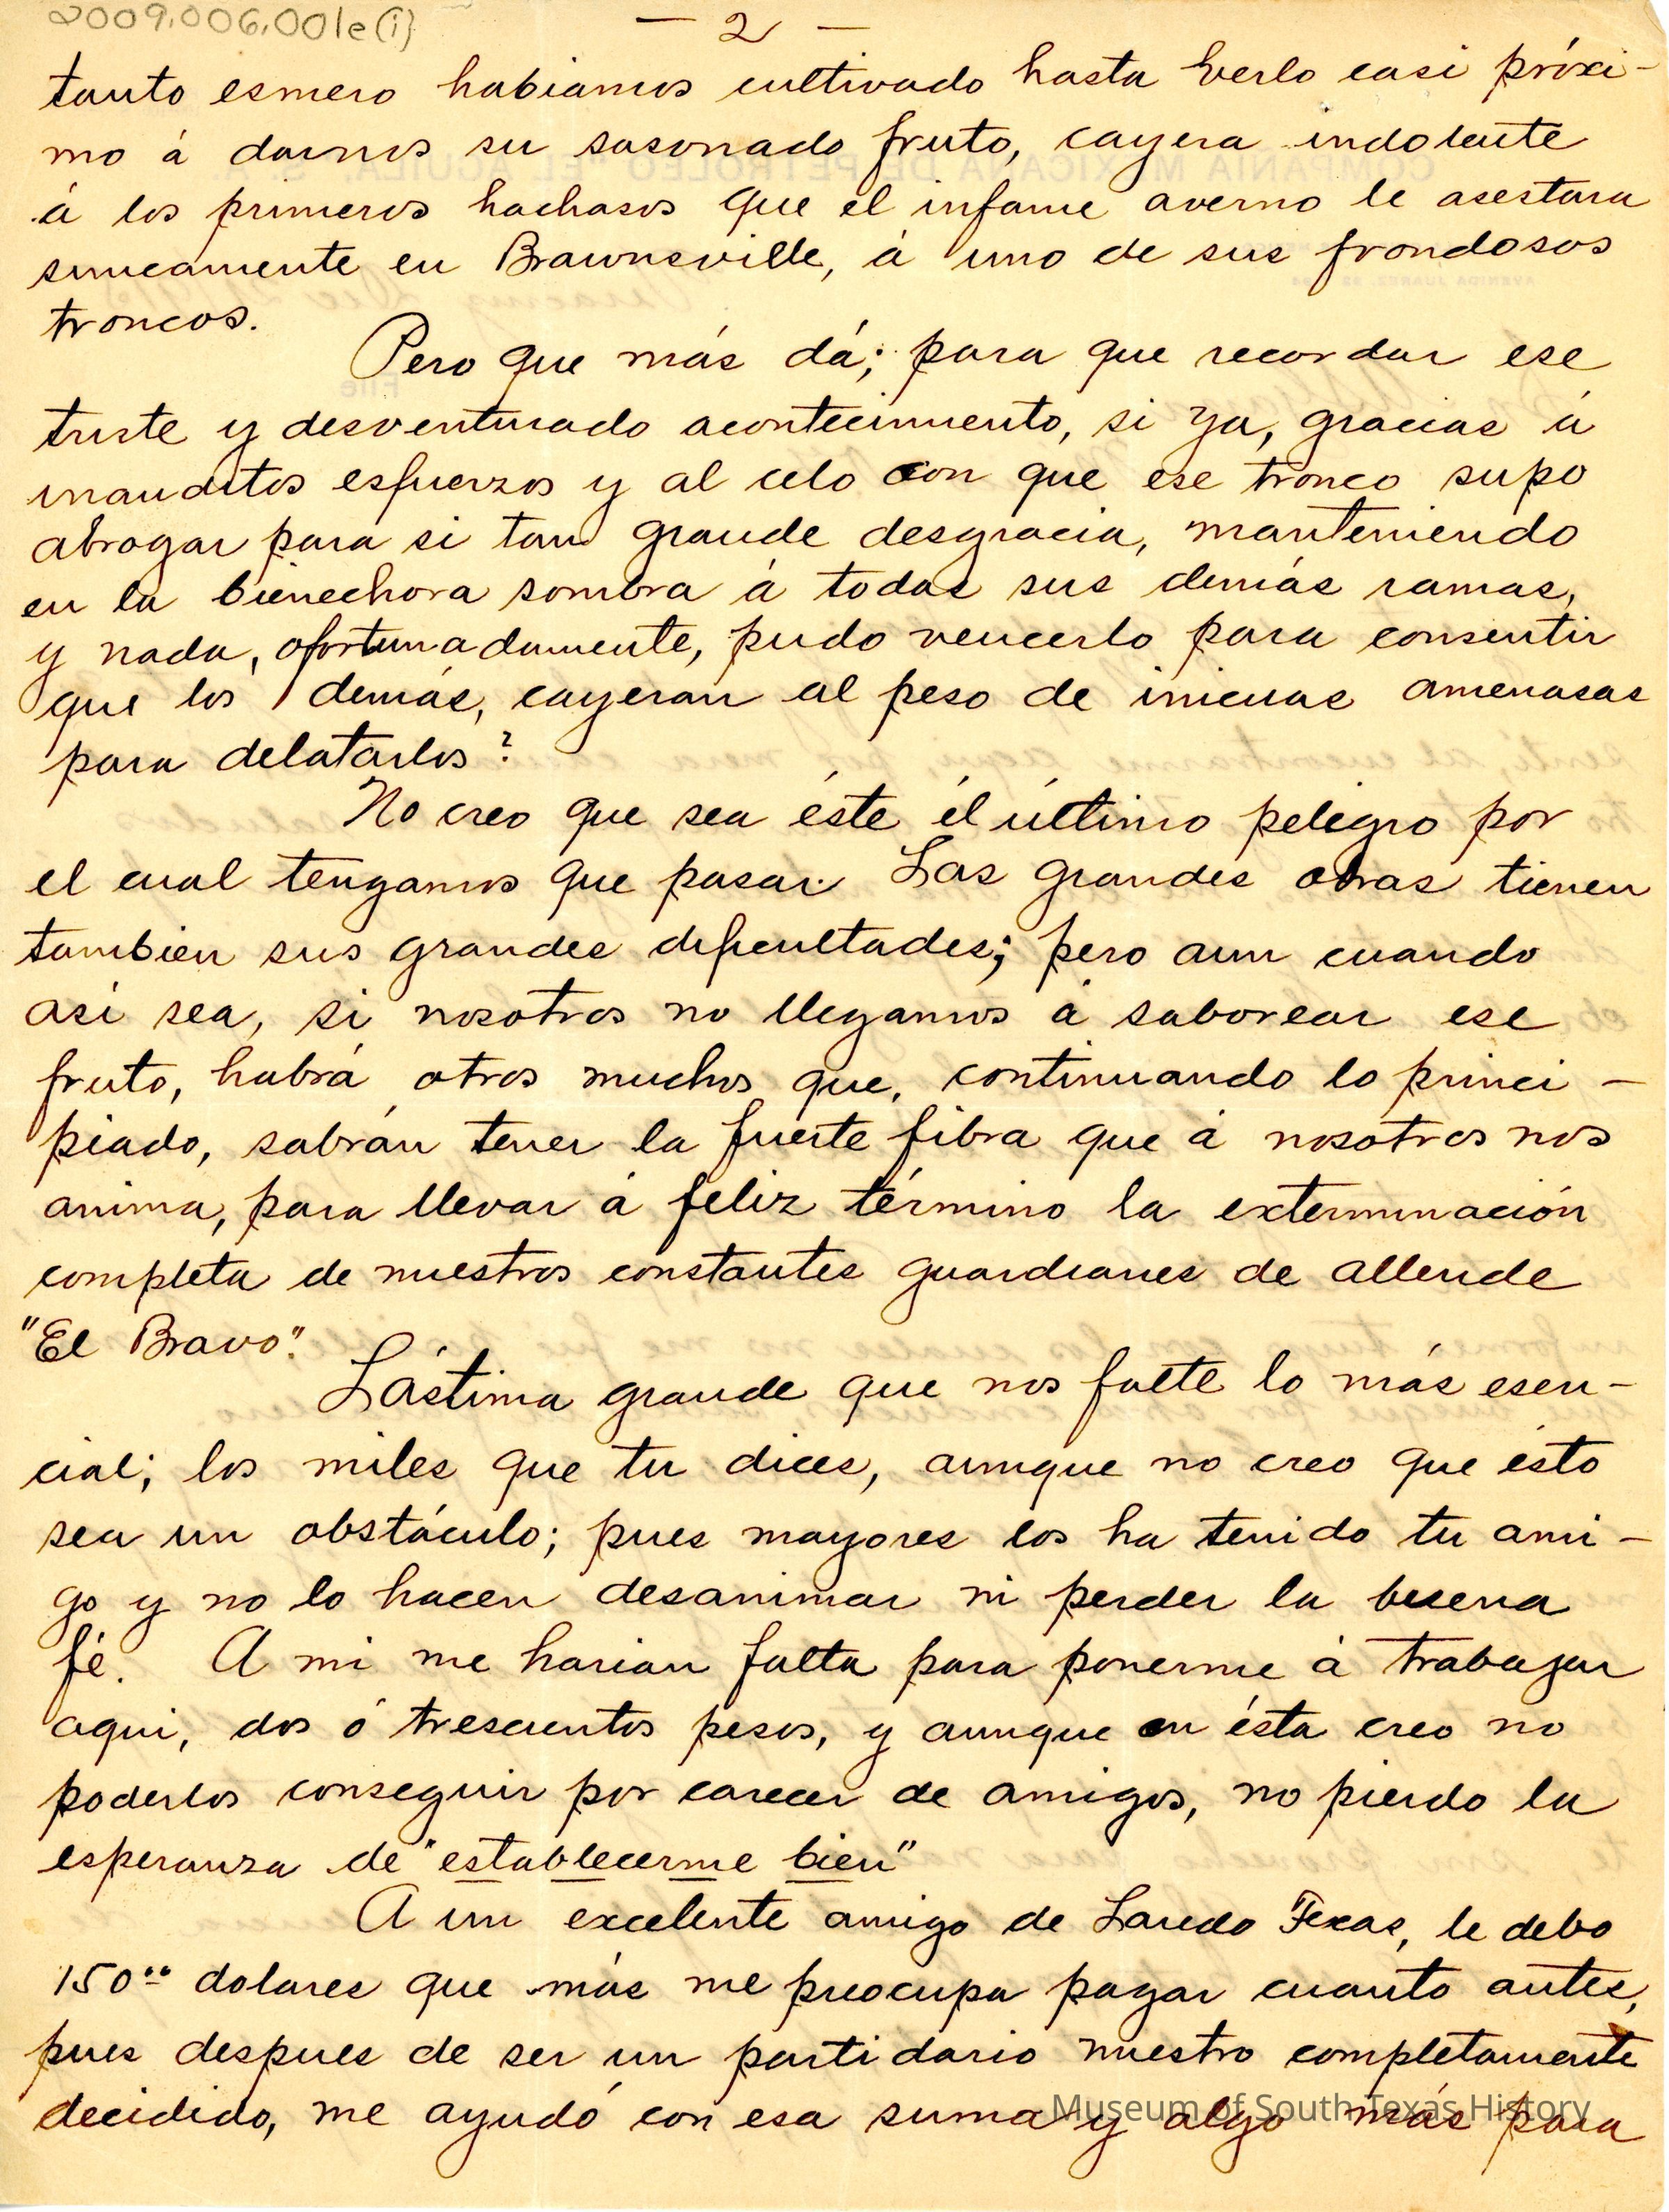 2009.006.001e(i)
— 2 —
tanto esmero habiamos cultivado hasta verlo casi próxi-
mo á darnos su sasonado fruto, cayera indolente
á los primeros hachasos que el infame averno le asestara
simeamente en Brawnsville, á uno de sus frondosos
troncos.
Pero que más dá; para que recordar ese
triste y desventurado acontecimiento, si ya, gracias á
inauditos esfuerzos y al celo con que ese tronco supo
abrogar para si tan grande desgracia, manteniendo
en la bienechora sombra á todas sus demás ramas,
y nada, afortunadamente, pudo vencerlo para consentir
que los demás, cayeran al peso de inicuas amenasas
para delatarlos?
No creo que sea éste él último peligro por
el cual tengamos que pasar. Las grandes obras tienen
tambien sus grandes dificultades; pero aun cuando
asi sea, si nosotros no llegamos á saborear ese
fruto, habrá otros muchos que, continuando lo princi-
piado, sabrán tener la fuerte fibra que á nosotros nos
anima, para llevar á feliz término la exterminación
completa de nuestros constantes guardianes de allende
"El Bravo".
Lástima grande que nos falte lo más esen-
cial; los miles que tu dices, aunque no creo que ésto
sea un obstáculo; pues mayores los ha tenido tu ami-
go y no lo hacen desanimar ni perder la buena
fé. A mi me harian falta para ponerme á trabajar
aqui, dos ó trescientos pesos, y aunque en ésta creo no
poderlos conseguir por carecer de amigos, no pierdo la
esperanza de "establecerme bien"
A un excelente amigo de Laredo Texas, le debo
150.00 dolares que más me preocupa pagar cuanto antes,
pues despues de ser un partidario nuestro completamente
decidido, me ayudó con esa suma y algo más para
Museum of South Texas History